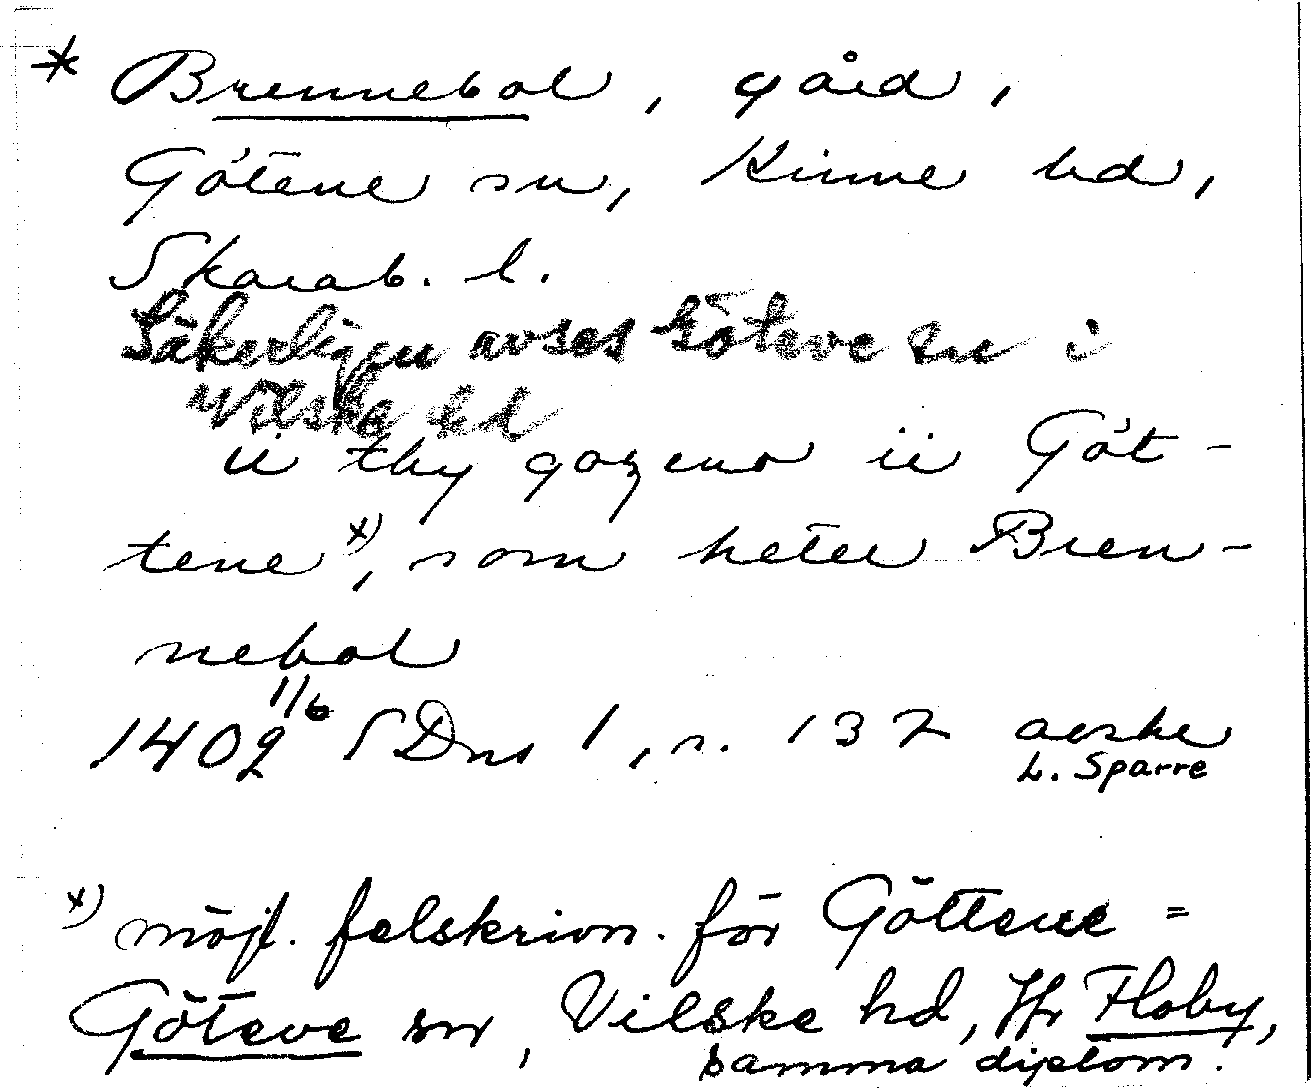 * Brennebol, gård,
Götene sn, Kinne hd,
Skarab. l.
Säkerligen avses Göteve sn i
Vilske hd
ii thy gozeno ii Göt-
tene x), som heter Bren-
nebol
1402 1/6 SDns 1, s. 137 avskr
L. Sparre
x) möjl. felskrivn. för Götteue =
Göteve sn, Vilske hd, Jfr Floby,
samma diplom.